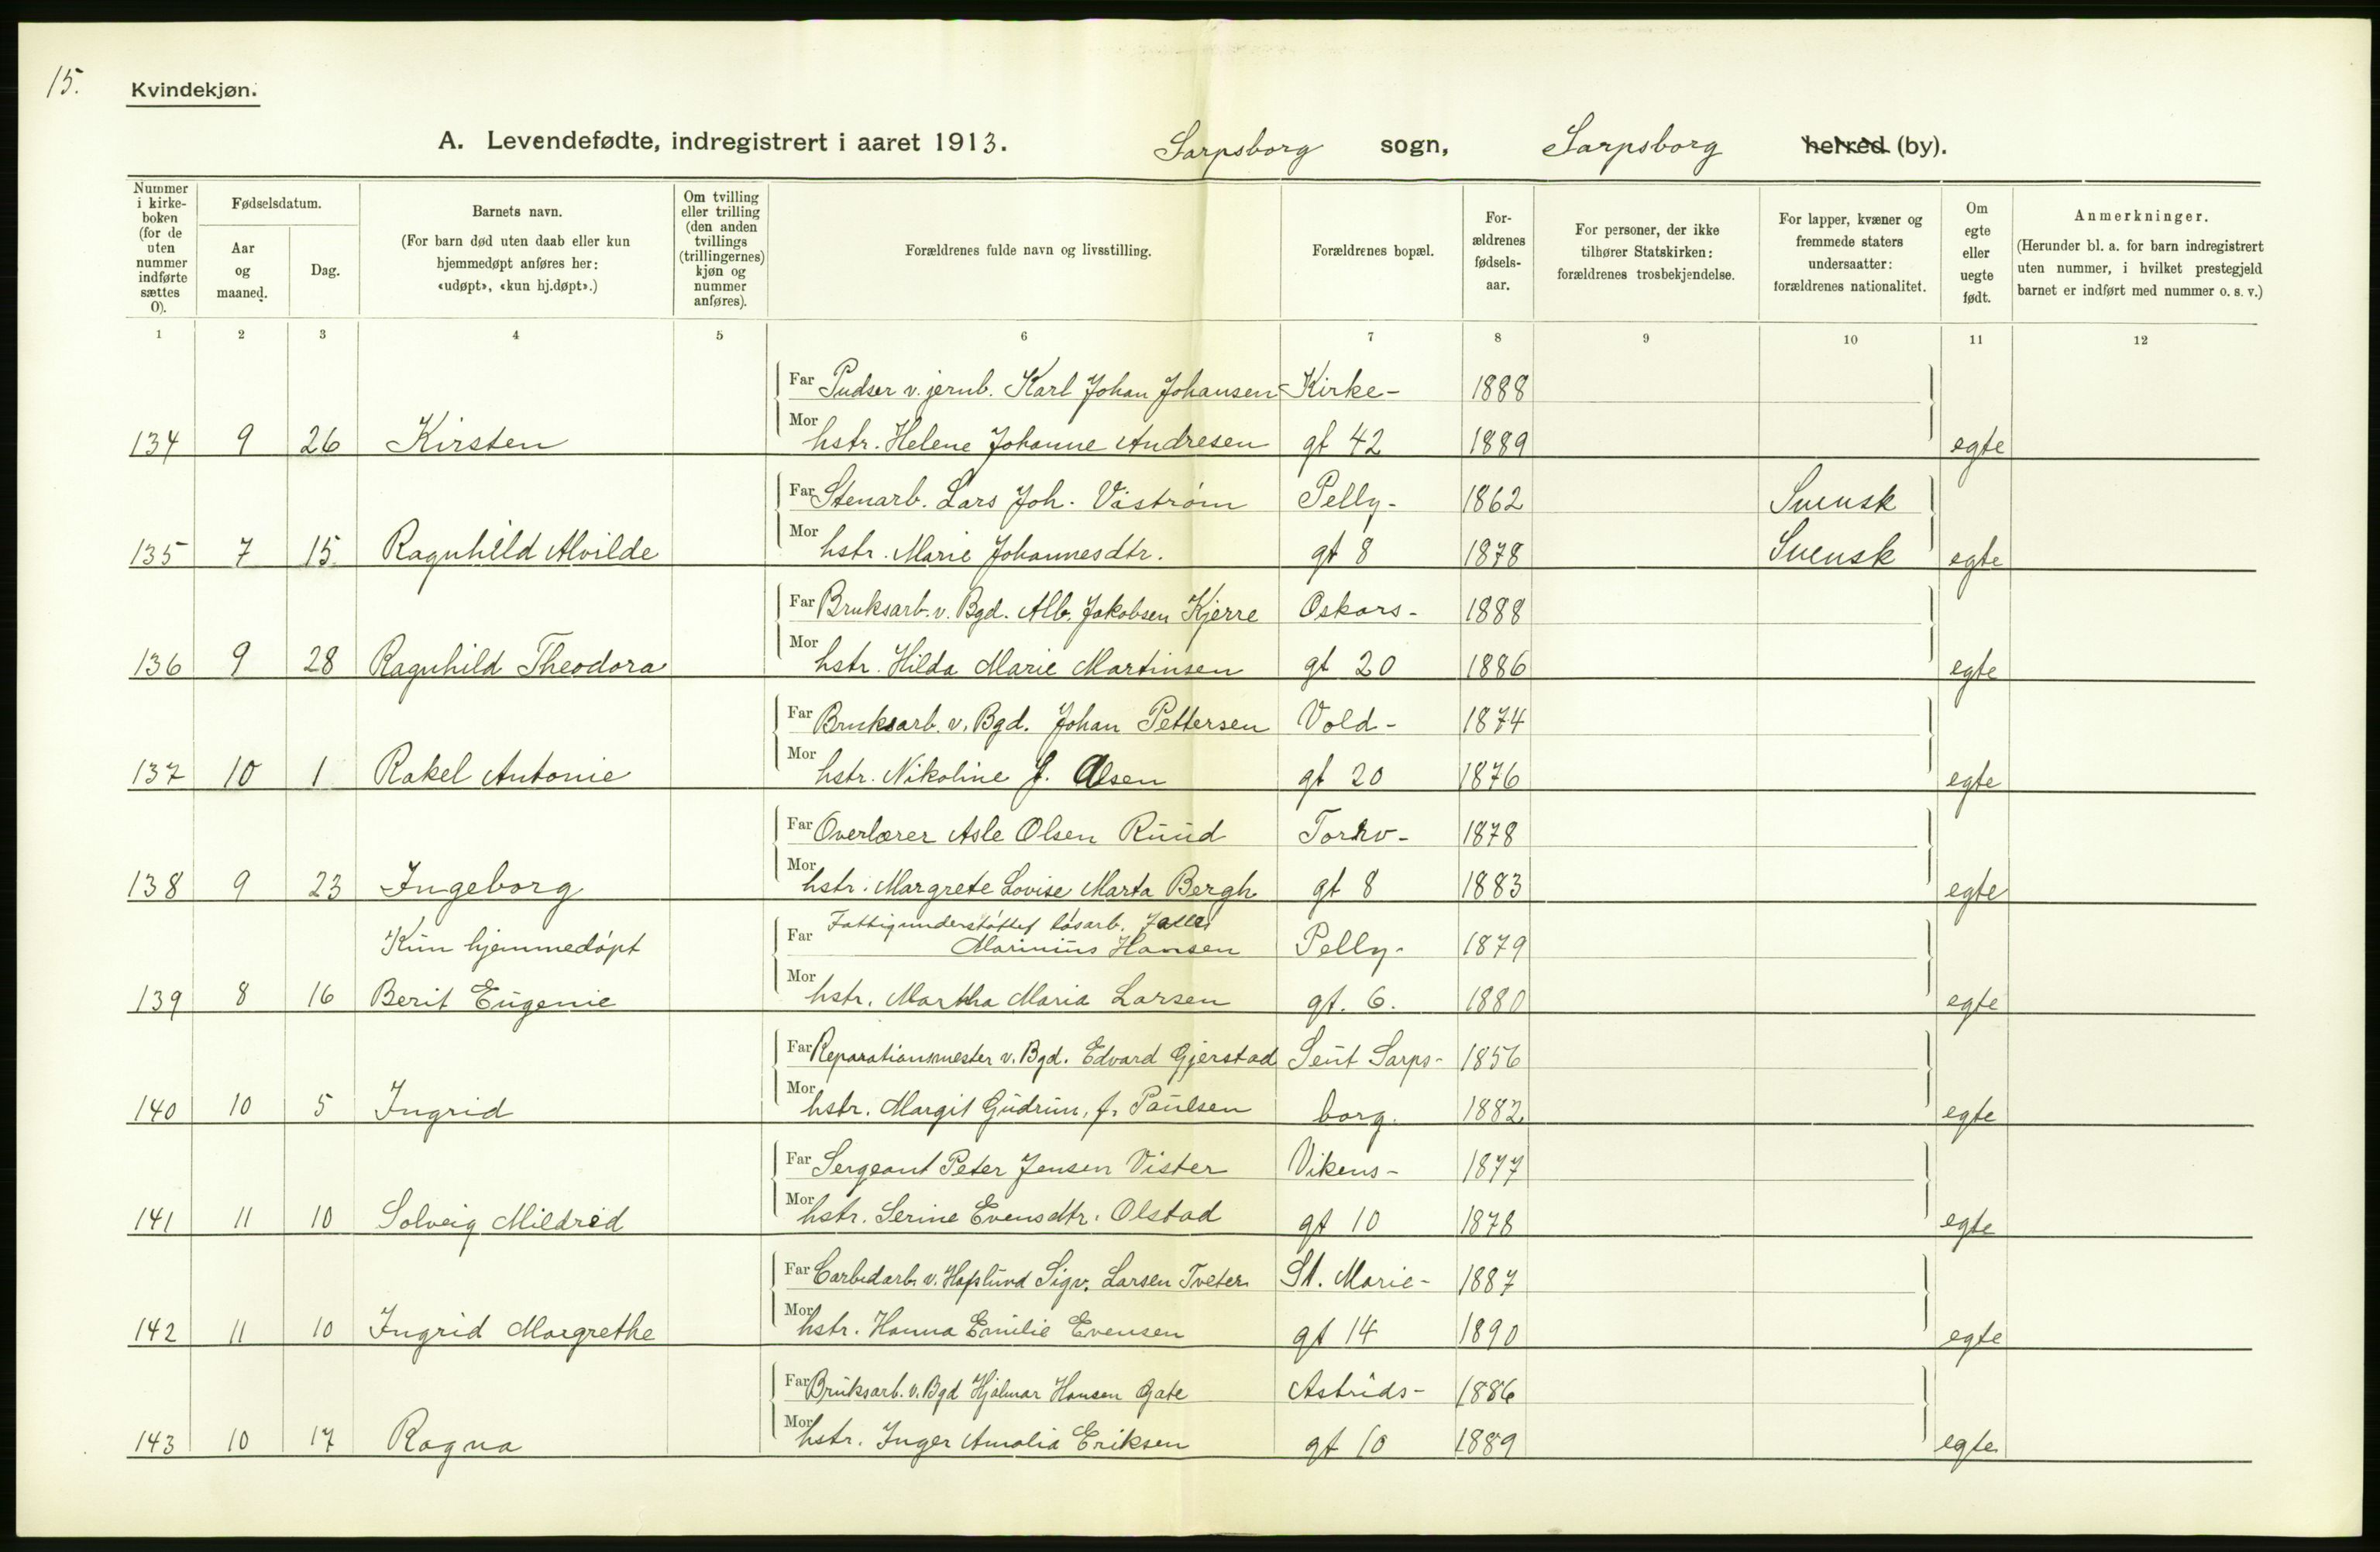 15.
Kvindekjøn.
A. Levendefødte, indregistrert i aaret 1913. Sarpsborg sogn, Sarpsborg herred (by).
Nummer i kirke-boken (for de uten nummer indførte sættes 0).
Fødselsdatum.
Aar og maaned.
Dag.
Barnets navn.
(For barn død uten daab eller kun hjemmedøpt anføres her: «udøpt», «kun hj.døpt».)
Om tvilling eller trilling (den anden tvillings (trillingernes) kjøn og nummer anføres).
Forældrenes fulde navn og livsstilling.
Forældrenes bopæl.
For-ældrenes fødsels-aar.
For personer, der ikke tilhører Statskirken: forældrenes trosbekjendelse.
For lapper, kvæner og fremmede staters undersaatter: forældrenes nationalitet.
Om egte eller uegte født.
Anmerkninger.
(Herunder bl. a. for barn indregistrert uten nummer, i hvilket prestegjeld barnet er indført med nummer o. s. v.)
1 2 3 4 5 6 7 8 9 10 11 12
Far Pudser v. jernb. Karl Johan Johansen Kirke- 1888
134 9 26 Kirsten Mor hstr. Helene Johanne Andresen gt 42 1889 egte
Far Stenarb. Lars Joh. Viström Pelly- 1862 Svensk
135 7 15 Ragnhild Alvilde Mor hstr. Marie Johannesdtr. gt 8 1878 Svensk egte
Far Bruksarb. v. Bgd. Alb. Jakobsen Kjerre Oskars- 1888
136 9 28 Ragnhild Theodora Mor hstr. Hilda Marie Martinsen gt 20 1886 egte
Far Bruksarb. v. Bgd. Johan Pettersen Vold- 1874
137 10 1 Rakel Antonie Mor hstr. Nikoline f. Olsen gt 20 1876 egte
Far Overlærer Asle Olsen Ruud Torv- 1878
138 9 23 Ingeborg Mor hstr. Margrete Lovise Marta Bergh gt 8 1883 egte
Kun hjemmedöpt Far Fattigunderstöttet lösarb.
Marinius Hansen Pelly- 1879
139 8 16 Berit Eugenie Mor hstr. Martha Maria Larsen gt. 6. 1880 egte
Far Reparationsmester v. Bgd. Edvard Gjerstad Sent Sarps- 1856
140 10 5 Ingrid Mor hstr. Margit Gudrun, f. Paulsen borg. 1882 egte
Far Sergeant Peter Jensen Vister Vikens- 1877
141 11 10 Solveig Mildred Mor hstr. Serine Evensdtr. Olstad gt 10 1878 egte
Far Carbidarb. v. Hafslund Sigv. Larsen Tveter St. Marie- 1887
142 11 10 Ingrid Margrethe Mor hstr. Hanna Emilie Evensen gt 14 1890 egte
Far Bruksarb. v. Bgd Hjalmar Hansen Gate Astrids- 1886
143 10 17 Ragna Mor hstr. Inger Amalia Eriksen gt 10 1889 egte